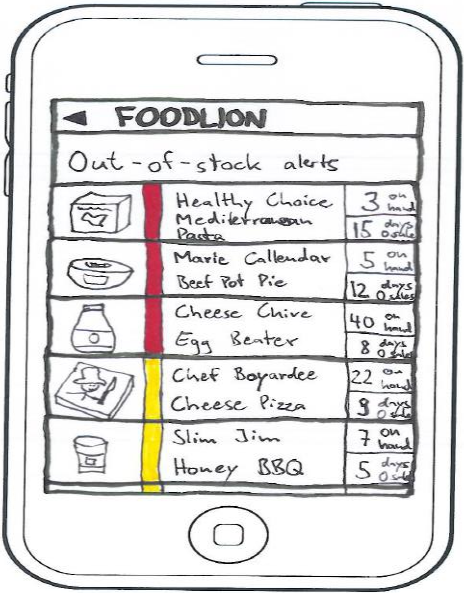 FOODLION
Out-of-stock alerts
Healthy Choice
Mediterranean
Pasta
3 on hand
15 days 0 sales
Marie Callendar
Beef Pot Pie
5 on hand
12 days 0 sales
Cheese Chive
Egg Beater
40 on hand
8 days 0 sales
Chef Boyardee
Cheese Pizza
22 on hand
9 days 0 sales
Slim Jim
Honey BBQ
7 on hand
5 days 0 sales